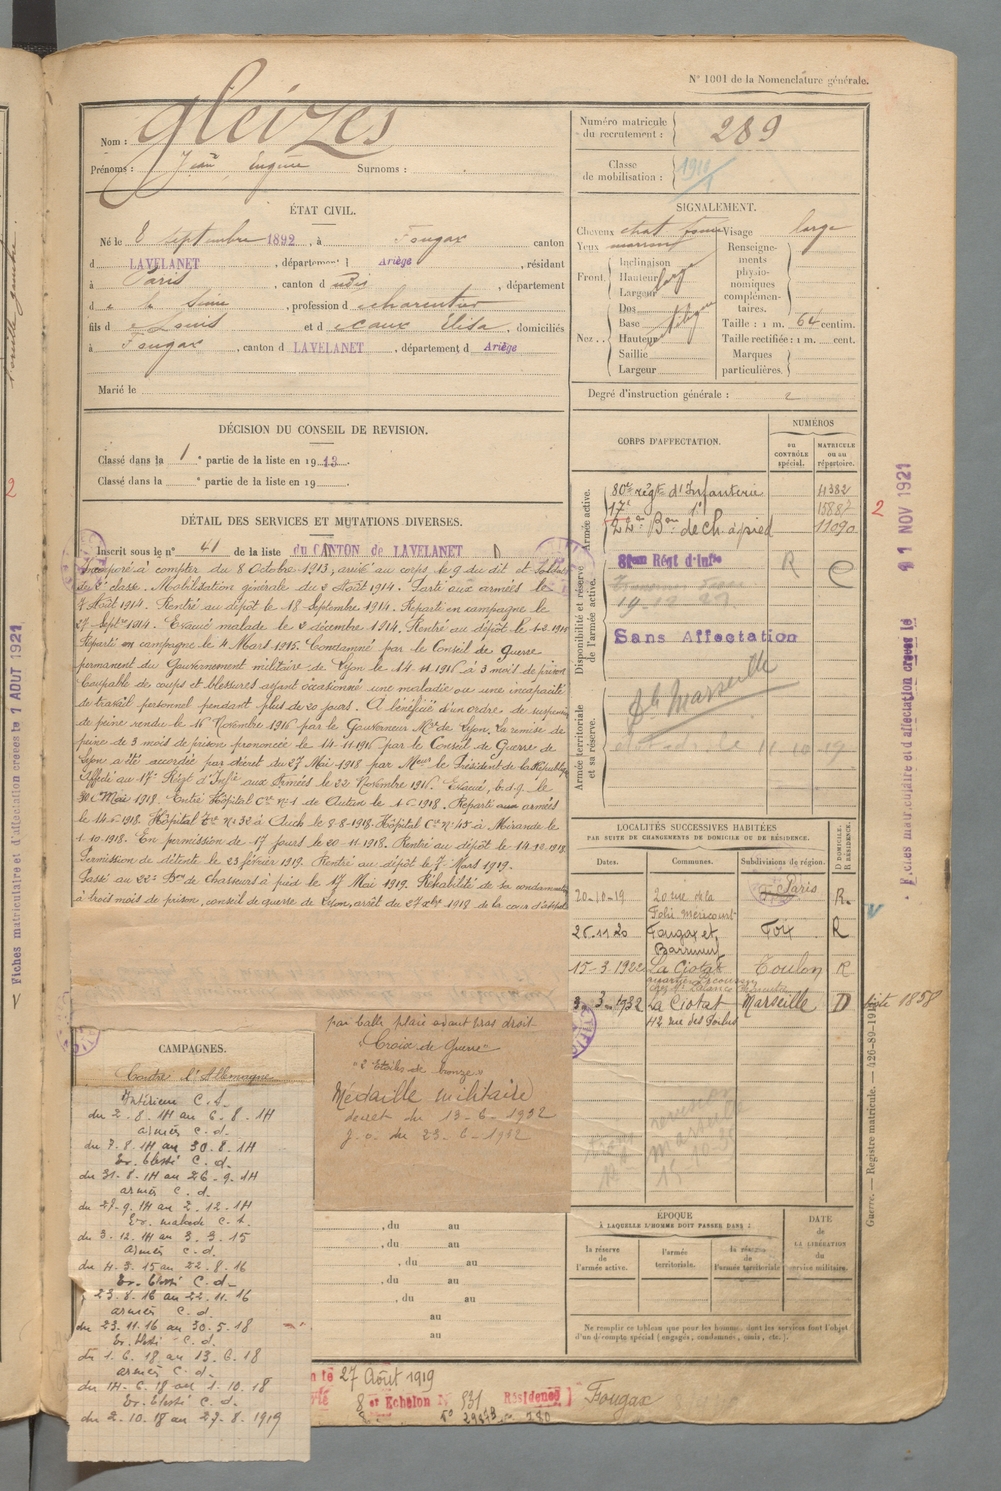 N° 1001 de la Nomenclature générale.
Nom : Gleizes
Prénoms : Jean Eugène Surnoms :
Numéro matricule du recrutement : 289
Classe de mobilisation :
ÉTAT CIVIL.
Né le 8 septembre 1892, à Fougax canton
d LAVELANET, département d Ariège, résidant
à Paris, canton d udis, département
de la Seine, profession de charentier
fils de Louis et de caux Elisa, domiciliés
à Fougax, canton d LAVELANET, département d Ariège
Marié le
SIGNALEMENT.
Cheveux chat Visage large
Yeux marrons Renseignements physionomiques complémentaires.
Front. Inclinaison
Hauteur large
Largeur
Nez.. Dos
Base
Hauteur
Saillie
Largeur
Taille : 1 m. 64 centim.
Taille rectifiée : 1 m. cent.
Marques particulières.
Degré d'instruction générale : 2
DÉCISION DU CONSEIL DE REVISION.
Classé dans la 1e partie de la liste en 1913.
Classé dans la e partie de la liste en 19
CORPS D'AFFECTATION.
NUMÉROS
au CONTRÔLE spécial.
MATRICULE ou au répertoire.
Armée active.
80e régt d'Infanterie 4382
17e 1d 15887
22e Bon de ch. à pied 11090
Disponibilité et réserve de l'armée active.
Régt d'Infie R C
19-12-27
Sans Affectation
Armée territoriale et sa réserve.
Marseille
11-10-19
DÉTAIL DES SERVICES ET MUTATIONS DIVERSES.
Inscrit sous le n° 41 de la liste du CANTON de LAVELANET
Incorporé à compter du 8 Octobre 1913, arrivé au corps le 9 du dit et soldat
de 2e classe. Mobilisation générale du 2 Août 1914. Parti aux armées le
7 Août 1914. Rentré au dépôt le 18 Septembre 1914. Reparti en campagne le
27 Septbre 1914. Evacué malade le 2 décembre 1914. Rentré au dépôt le 1-2-1915
Reparti en campagne le 4 Mars 1915. Condamné par le Conseil de Guerre
permanent du Gouvernement militaire de Lyon le 14-11-1916 à 3 mois de prison
Coupable de coups et blessures ayant occasionné une maladie ou une incapacité
de travail personnel pendant plus de 20 jours. A bénéficié d'un ordre de suspension
de peine rendu le 16 Novembre 1916 par le Gouverneur Mre de Lyon. La remise de
peine de 3 mois de prison prononcée le 14-11-1916 par le Conseil de Guerre de
Lyon a été accordée par décret du 27 Mai 1918 par Mr le Président de la République
Affecté au 17e Régt d'Infie aux Armées le 22 Novembre 1916. Evacué, b.d.g. le
30 Mai 1918. Entré Hôpital Cre n° 1 de Autun le 1-6-1918. Reparti aux armées
le 14-6-1918. Hôpital Cre N° 32 à Auch le 8-8-1918. Hôpital Cre n° 45 à Mirande le
1-10-1918. En permission de 17 jours le 20-11-1918. Rentré au dépôt le 14-12-1918.
Permission de détente le 23 février 1919. Rentré au dépôt le 7 Mars 1919.
Passé au 22e Bon de chasseurs à pied le 17 Mai 1919. Réhabilité de sa condamnation
à trois mois de prison, conseil de guerre de Lyon, arrêt du 27 xbre 1918 de la cour d'appel
par balle plaie avant bras droit
"Croix de Guerre"
"2 étoiles de bronze"
Médaille militaire
décret du 13-6-1932
J.O. du 23-6-1932
CAMPAGNES.
Contre l'Allemagne
Intérieur C.S.
du 2.8.14 au 6.8.14
armées C.d.
du 7.8.14 au 30.8.14
Ev. blessé C.d.
du 31.8.14 au 26.9.14
armées C.d.
du 27.9.14 au 2.12.14
Ev. malade C.S.
du 3.12.14 au 3.3.15
armées C.d.
du 4.3.15 au 22.8.16
Ev. blessé C.d.
23.8.16 au 22.11.16
armées C.d.
du 23.11.16 au 30.5.18
Ev. blessé C.d.
du 1.6.18 au 13.6.18
armées C.d.
du 14.6.18 au 1.10.18
Ev. blessé C.d.
du 2.10.18 au 27.8.1919
, du au
, du au
, du au
, du au
, du au
au
au
LOCALITÉS SUCCESSIVES HABITÉES
PAR SUITE DE CHANGEMENTS DE DOMICILE OU DE RÉSIDENCE.
Dates. Communes. Subdivisions de région. D DOMICILE. R RÉSIDENCE.
20-10-19 20 rue de la Folie Méricourt Paris R.
26-11-20 Fougax et Barrineuf Foix R
15-3-1922 La Ciotat Toulon R
3-3-1932 La Ciotat Marseille D
42 rue des Poilus
ÉPOQUE
À LAQUELLE L'HOMME DOIT PASSER DANS :
la réserve de l'armée active.
l'armée territoriale.
la réserve de l'armée territoriale
DATE de LA LIBÉRATION du service militaire.
Ne remplir ce tableau que pour les hommes dont les services font l'objet d'un décompte spécial (engagés, condamnés, omis, etc.).
27 Août 1919
8 Echelon N° 831 Résidence Fougax
Fiches matriculaire et d'affectation créées le 1 AOUT 1921
Fiches matriculaire et d'affectation créées le 11 NOV 1921
2
2
Guerre. — Registre matricule. — 426-89-191